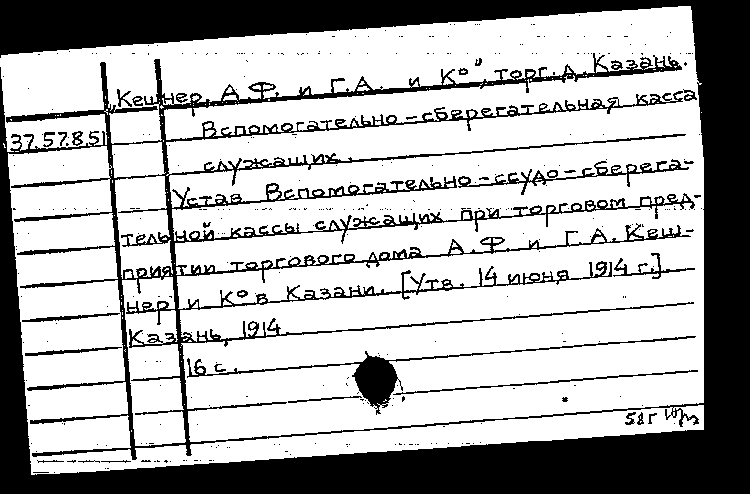 „Кешнер, А.Ф. и Г.А. и К°", торг. д. Казань.
Вспомогательно-сберегательная касса
37.57.8.51
служащих.
Устав Вспомогательно-ссудо-сберега-
тельной кассы служащих при торговом пред-
приятии торгового дома А.Ф. и Г.А. Кеш-
нер и К° в Казани. [Утв. 14 июня 1914 г.].
Казань, 1914.
16 с.
58г